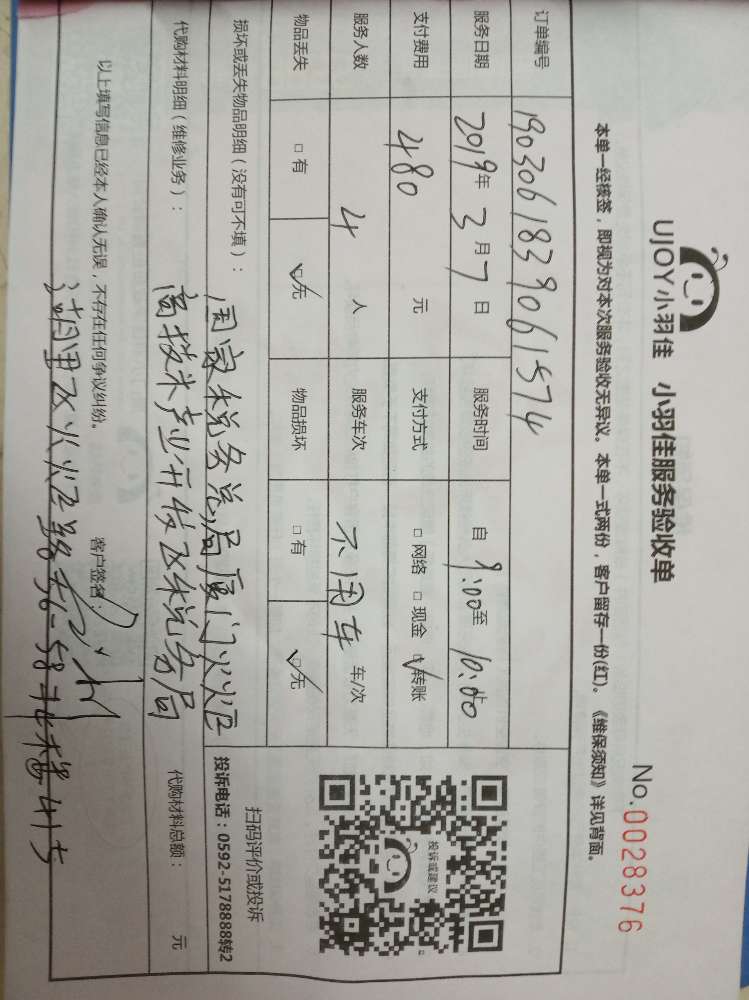 UJOY小羽佳 小羽佳服务验收单
No.0028376
本单一经核签，即视为对本次服务验收无异议。本单一式两份，客户留存一份(红)。《维保须知》详见背面。
订单编号 1903061839061574
服务日期 2019年3月7日 服务时间 自9:00至10:00
支付费用 480 元 支付方式 □网络 □现金 ☑转账
服务人数 4 人 服务车次 不用车 车/次
物品丢失 □有 ☑无 物品损坏 □有 ☑无
投诉或建议
扫码评价或投诉
投诉电话：0592-5178888转2
损坏或丢失物品明细（没有可不填）：
国家税务总局厦门火炬
高技术产业开发区税务局
代购材料明细（维修业务）： 代购材料总额： 元
以上填写信息已经本人确认无误，不存在任何争议纠纷。 客户签名：
湖里区火炬路56-58 北楼41号